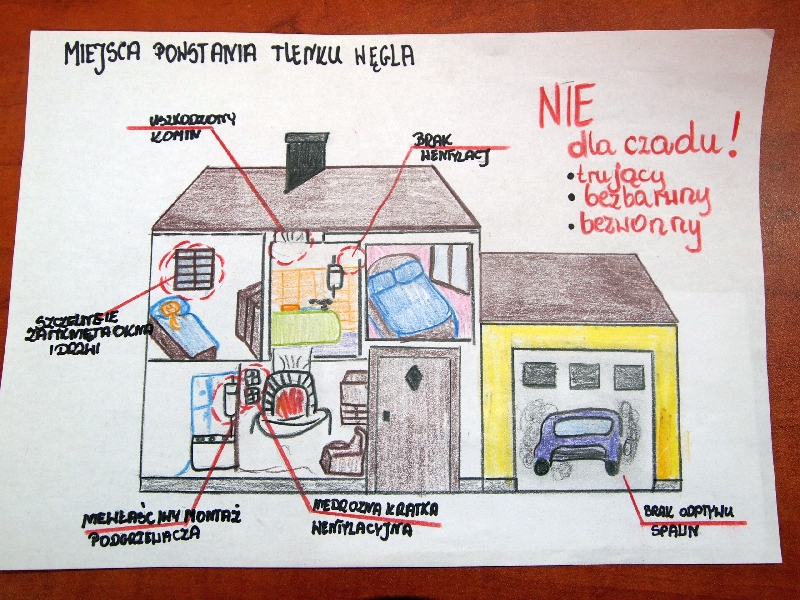 MIEJSCA POWSTANIA TLENKU WĘGLA
NIE
dla czadu!
• trujący
• bezbarwny
• bezwonny
USZKODZONY
KOMIN
BRAK
WENTYLACJ
SZCZELNIE
ZAMKNIĘTA OKNA
I DRZWI
NIEWŁAŚCIWY MONTAŻ
PODGRZEWACZA
NIEDROŻNA KRATKA
WENTYLACYJNA
BRAK ODPŁYWU
SPALIN